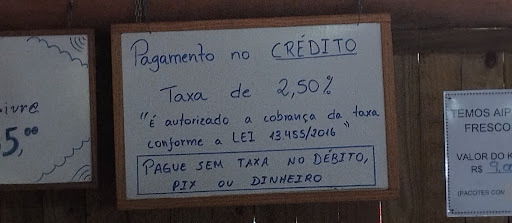 ivre
5,00
Pagamento no CRÉDITO
Taxa de 2,50%
"É autorizado a cobrança da taxa
conforme a LEI 13.455/2016"
PAGUE SEM TAXA NO DÉBITO,
PIX OU DINHEIRO
TEMOS AIP
FRESCO
VALOR DO K
R$ 9,00
(PACOTES COM